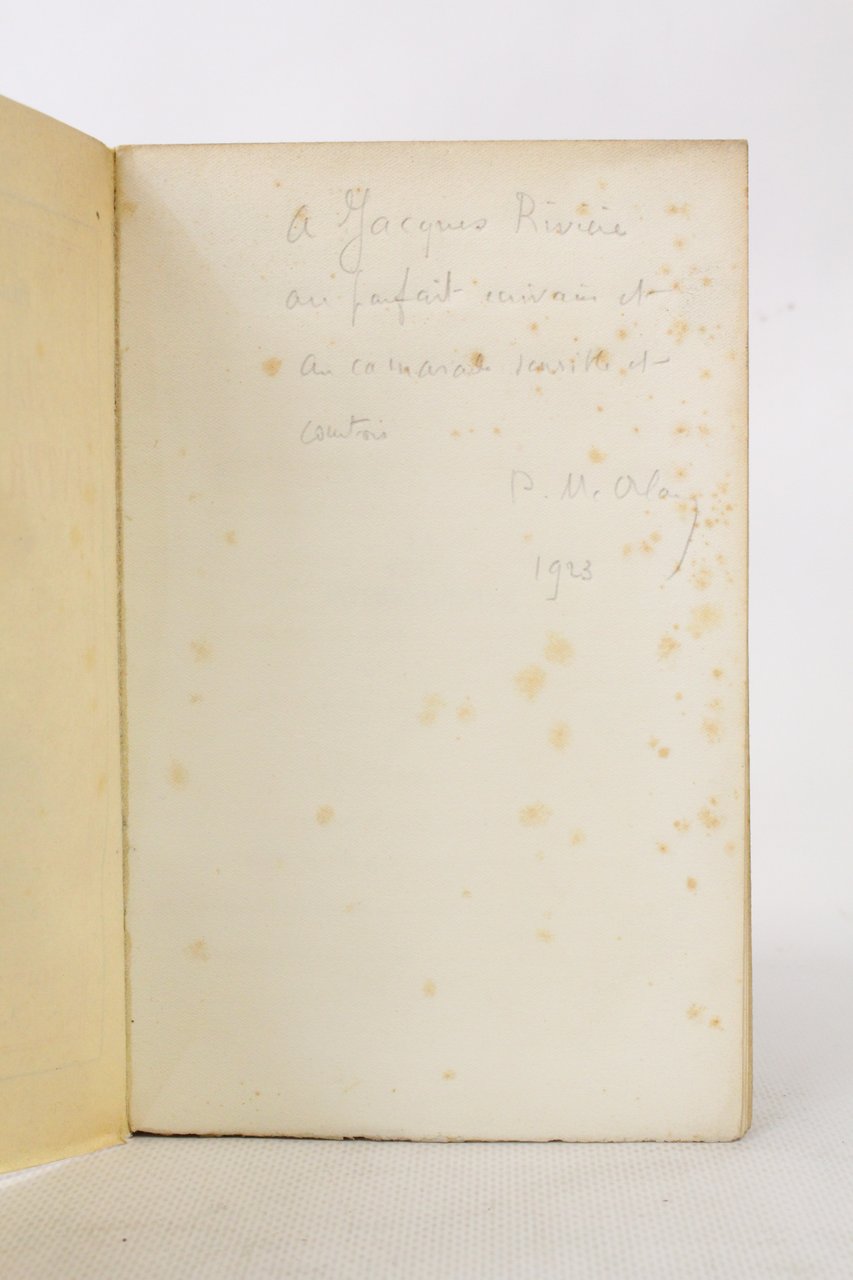 A Jacques Rivière
au parfait écrivain et
au camarade sensible et
courtois
P. Mc Orlan
1923